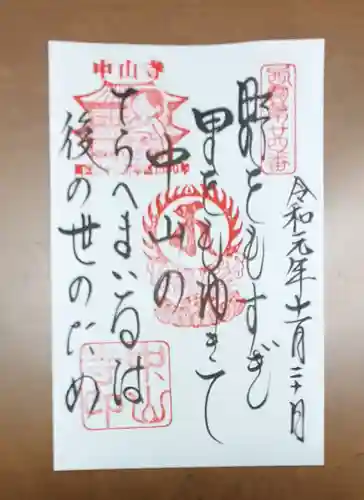 西国第廿四番
令和元年十一月二十日
野をもすぎ
里をもゆきて
中山の
てらへまいるは
後の世のため
中山寺